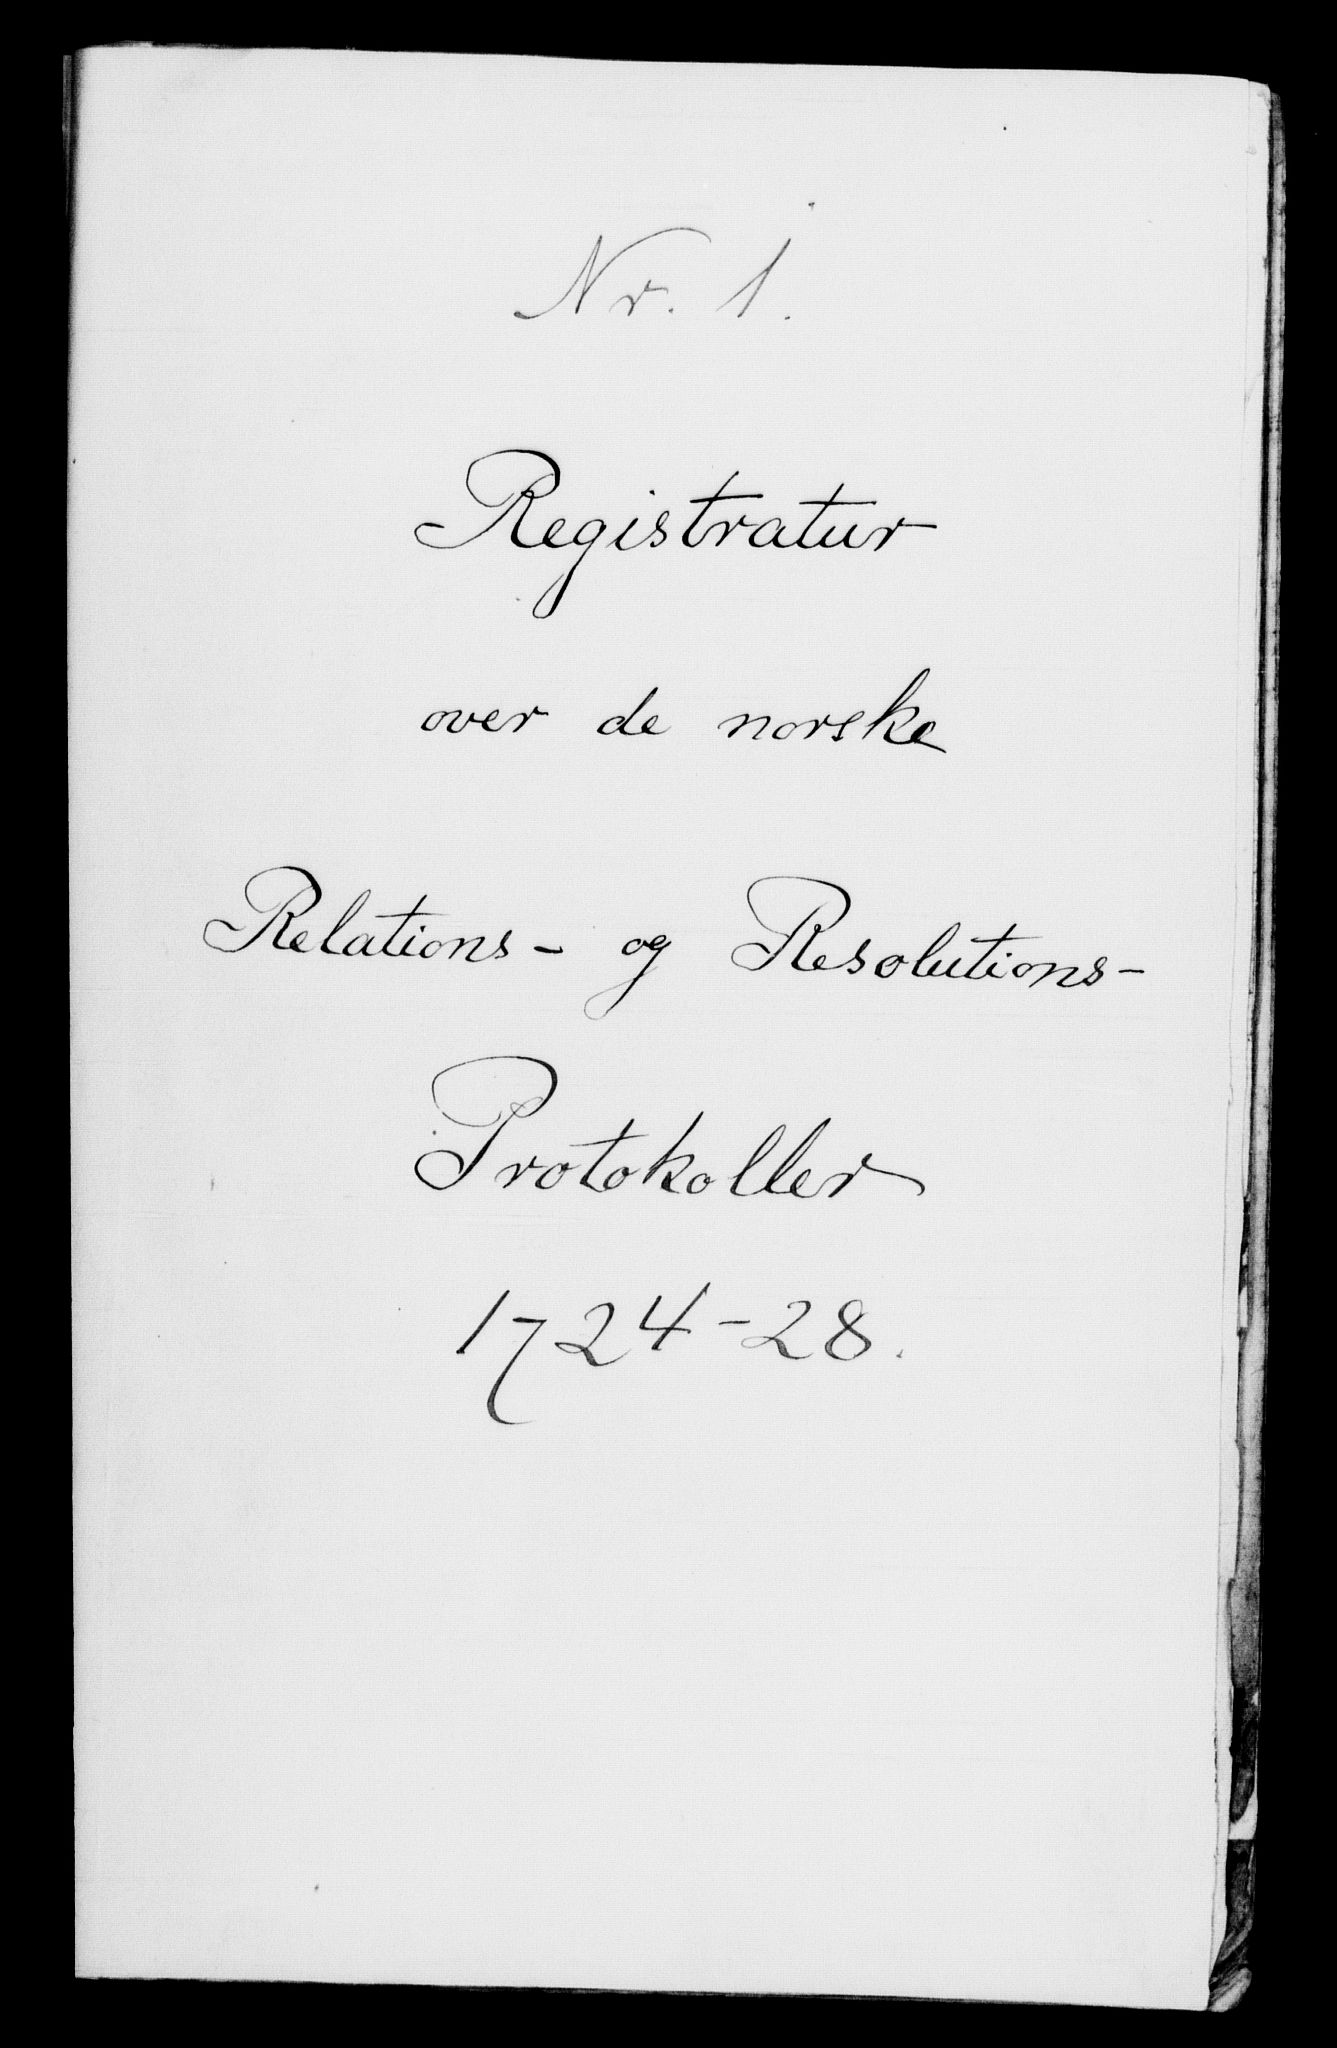 Nr. 1.
Registratur
over de norske
Relations- og Resolutions-
Protokoller
1724-28.